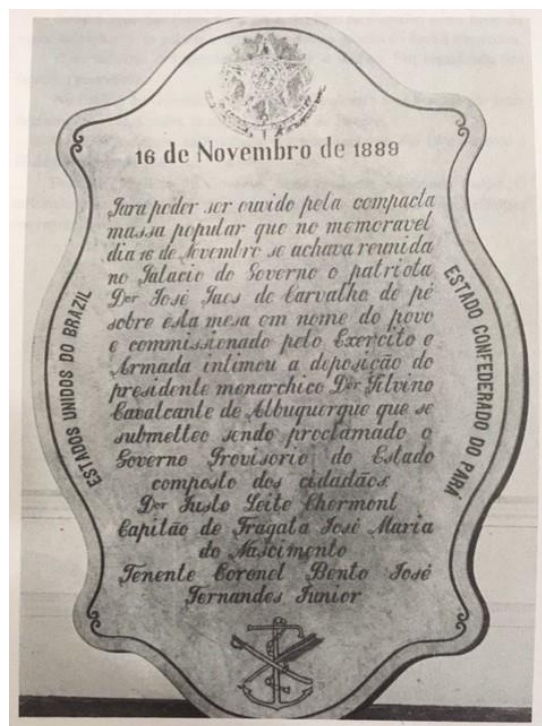 16 de Novembro de 1889
Para poder ser ouvido pela compacta
massa popular que no memoravel
dia 16 de Novembro se achava reunida
no Palacio do Governo o patriota
Dor José Paes de Carvalho de pé
sobre esta mesa em nome do povo
e commissionado pelo Exercito e
Armada intimou a deposição do
presidente monarchico Dor Silvino
Cavalcante de Albuquerque que se
submetteo sendo proclamado o
Governo Provisorio do Estado
composto dos cidadãos
Dor Justo Leite Chermont
Capitão de Fragata José Maria
do Nascimento
Tenente Coronel Bento José
Fernandes Junior
ESTADOS UNIDOS DO BRAZIL
ESTADO CONFEDERADO DO PARÁ